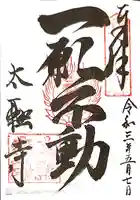 奉拝
一願不動
令和三年五月七日
太融寺